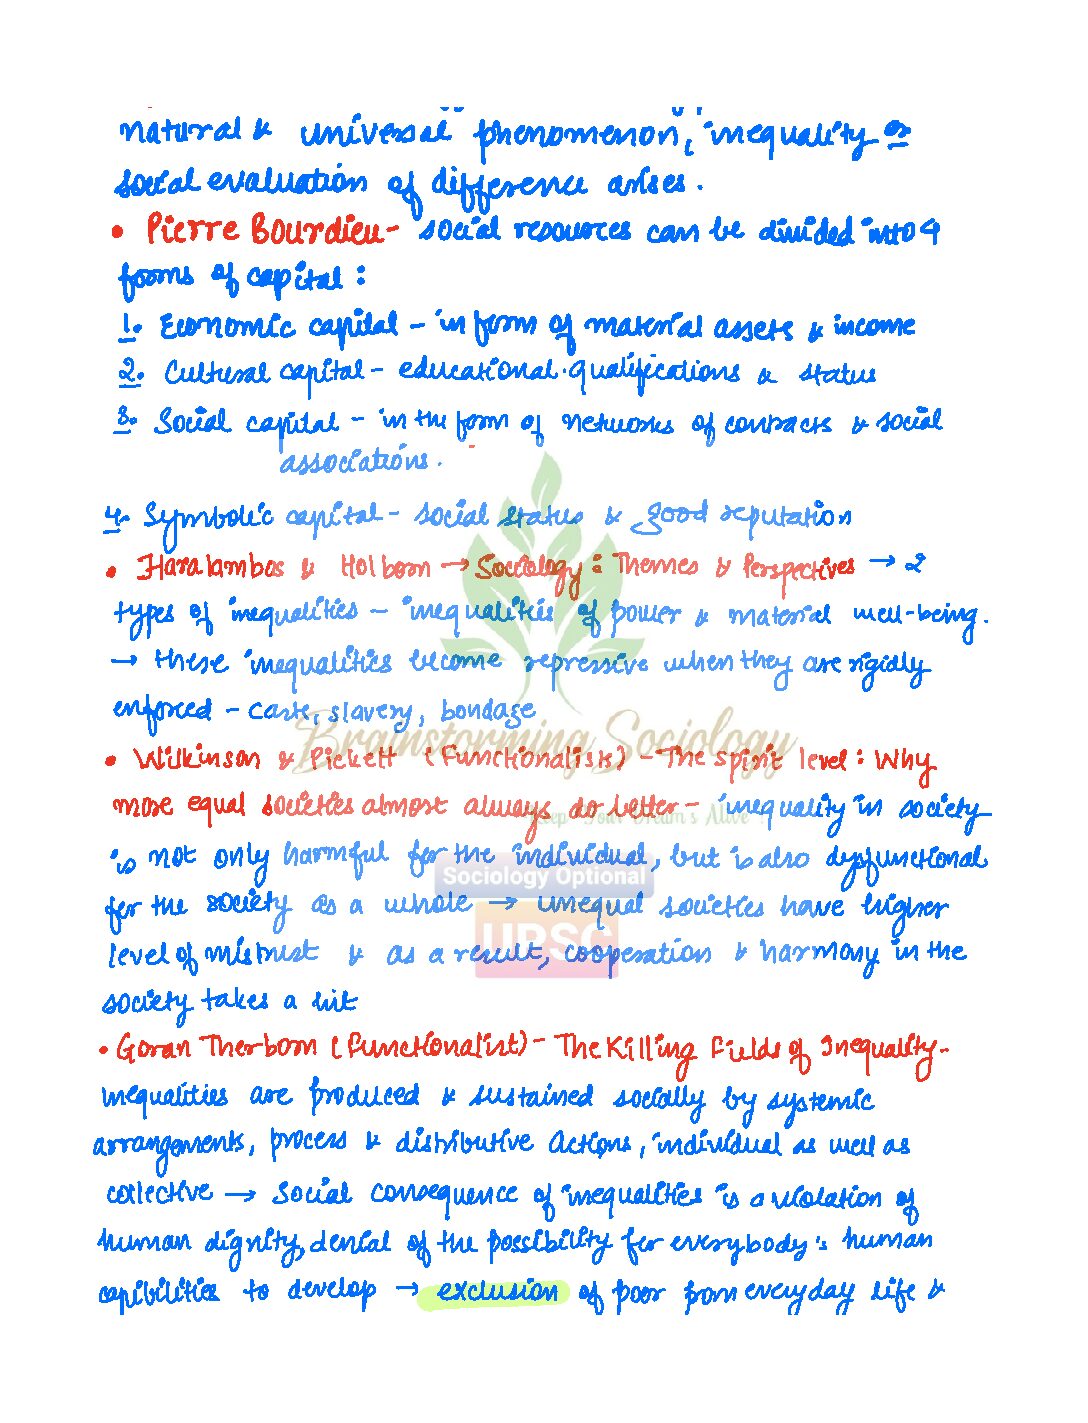 natural & universal phenomenon, inequality or
social evaluation of difference arises.
• Pierre Bourdieu- social resources can be divided into 4
forms of capital:
1. Economic capital - in form of material assets & income
2. Cultural capital - educational qualifications & status
3. Social capital - in the form of networks of contracts & social
associations.
4. Symbolic capital - social status & good reputation
• Haralambos & Holborn → Sociology: Themes & Perspectives → 2
types of inequalities - inequalities of power & material well-being.
→ these inequalities become repressive when they are rigidly
enforced - caste, slavery, bondage
Brainstorming Sociology
• Wilkinson & Pickett (Functionalists) - The Spirit level: Why
more equal societies almost always do better - inequality in society
Keep Your Dream's Alive!
is not only harmful for the individual, but is also dysfunctional
Sociology Optional
for the society as a whole → unequal societies have higher
UPSC
level of mistrust & as a result, cooperation & harmony in the
society takes a hit
• Goran Therborn (Functionalist) - The Killing Fields of Inequality-
inequalities are produced & sustained socially by systemic
arrangements, process & distributive actions, individual as well as
collective → Social consequence of inequalities is a violation of
human dignity, denial of the possibility for everybody's human
capibilities to develop → exclusion of poor from everyday life &